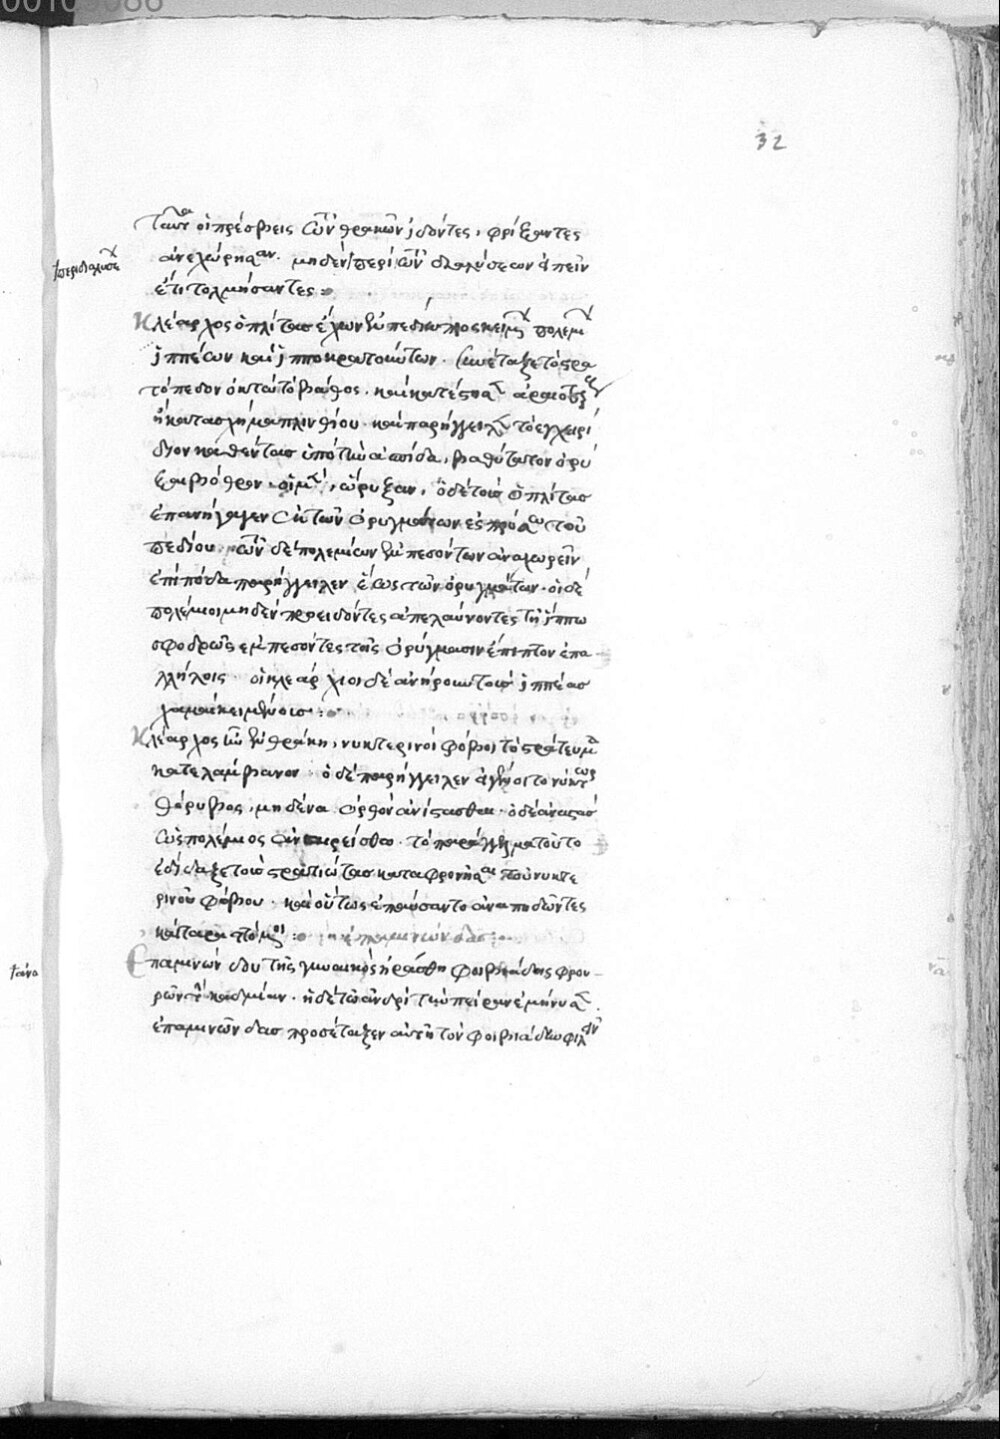 32
ταῦτα οἱ πρέσβεις τῶν θρακῶν ἰδόντες, φρίξαντες
ἀνεχώρησαν. μηδὲν περὶ τῶν διαλύσεων εἰπεῖν
περὶ διαλύσε
ἔτι τολμήσαντες:
Κλέαρχος ὁπλίτας ἔχων ἐν πεδίω προσκειμένων πολεμίων
ἱππέων καὶ ἱπποκρατούντων. συνέταξε τὸ στρα
τόπεδον ὀκτὼ τὸ βάθος. καὶ κατέστησεν ἀραιοτέρας
ἢ κατὰ σχῆμα πλινθίου. καὶ παρήγγειλεν τὸ ἐγχειρί
διον καθέντας ὑπὸ τὴν ἀσπίδα, βαθύτατον ὀρύ
ξαι βόθρον. οἱ μὲν, ὤρυξαν, ὁ δὲ τοὺς ὁπλίτας
ἐπανήγαγεν ἐκ τῶν ὀρυγμάτων ἐς πρόσω τοῦ
πεδίου. τῶν δὲ πολεμίων ἐμπεσόντων ἀναχωρεῖν
ἐπὶ πόδα παρήγγειλεν ἕως τῶν ὀρυγμάτων. οἱ δὲ
πολέμιοι μηδὲν προειδόντες ἀπελαύνοντες τῆ ἵππω
σφοδρῶς ἐμπεσόντες τοῖς ὀρύγμασιν ἔπιπτον ἐπα
λλήλοις. οἱ κλεάρχιοι δὲ ἀνήρουν τοὺς ἱππέας
χαμαὶ κειμένους:
Κλέαρχος ἦν ἐν θράκη, νυκτερινοὶ φόβοι τὸ στράτευμα
κατελάμβανον. ὁ δὲ παρήγγειλεν εἰ γένοιτο νύκτωρ
θόρυβος, μηδένα ὀρθὸν ἀνίστασθαι. ὁ δὲ ἀναστὰς
ὡς πολέμιος ἀναιρείσθω. τὸ παράγγελμα τοῦτο
ἐδίδαξε τοὺς στρατιώτας καταφρονῆσαι τοῦ νυκτε
ρινοῦ φόβου. καὶ οὕτως ἐπαύσαντο ἀναπηδῶντες
καὶ ταραττόμενοι:
Ἐπαμινώνδου τῆς γυναικὸς ἠράσθη φοιβιάδης φρου
ρῶν τὴν καδμείαν. ἡ δὲ τῶ ἀνδρὶ τὴν πεῖραν ἐμήνυσεν.
ἐπαμινώνδας προσέταξεν αὐτῆ τὸν φοιβιάδην φιλεῖν